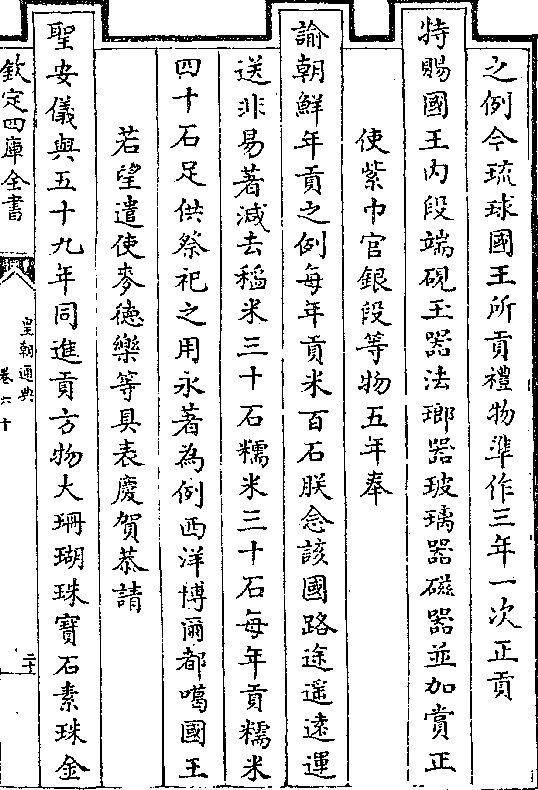 之例今琉球國王所貢禮物準作三年一次正貢
特賜國王内段端硯玉器法瑯器玻璃器磁器並加賞正
使紫巾官銀段等物五年奉
諭朝鮮年貢之例每年貢米百石朕念該國路途遥遠運
送非易著減去稻米三十石糯米三十石每年貢糯米
四十石足供祭祀之用永著為例西洋博爾都噶國王
若望遣使麥德樂等具表慶賀恭請
聖安儀與五十九年同進貢方物大珊瑚珠寶石素珠金
欽定四庫全書
皇朝通典
卷六十
二十